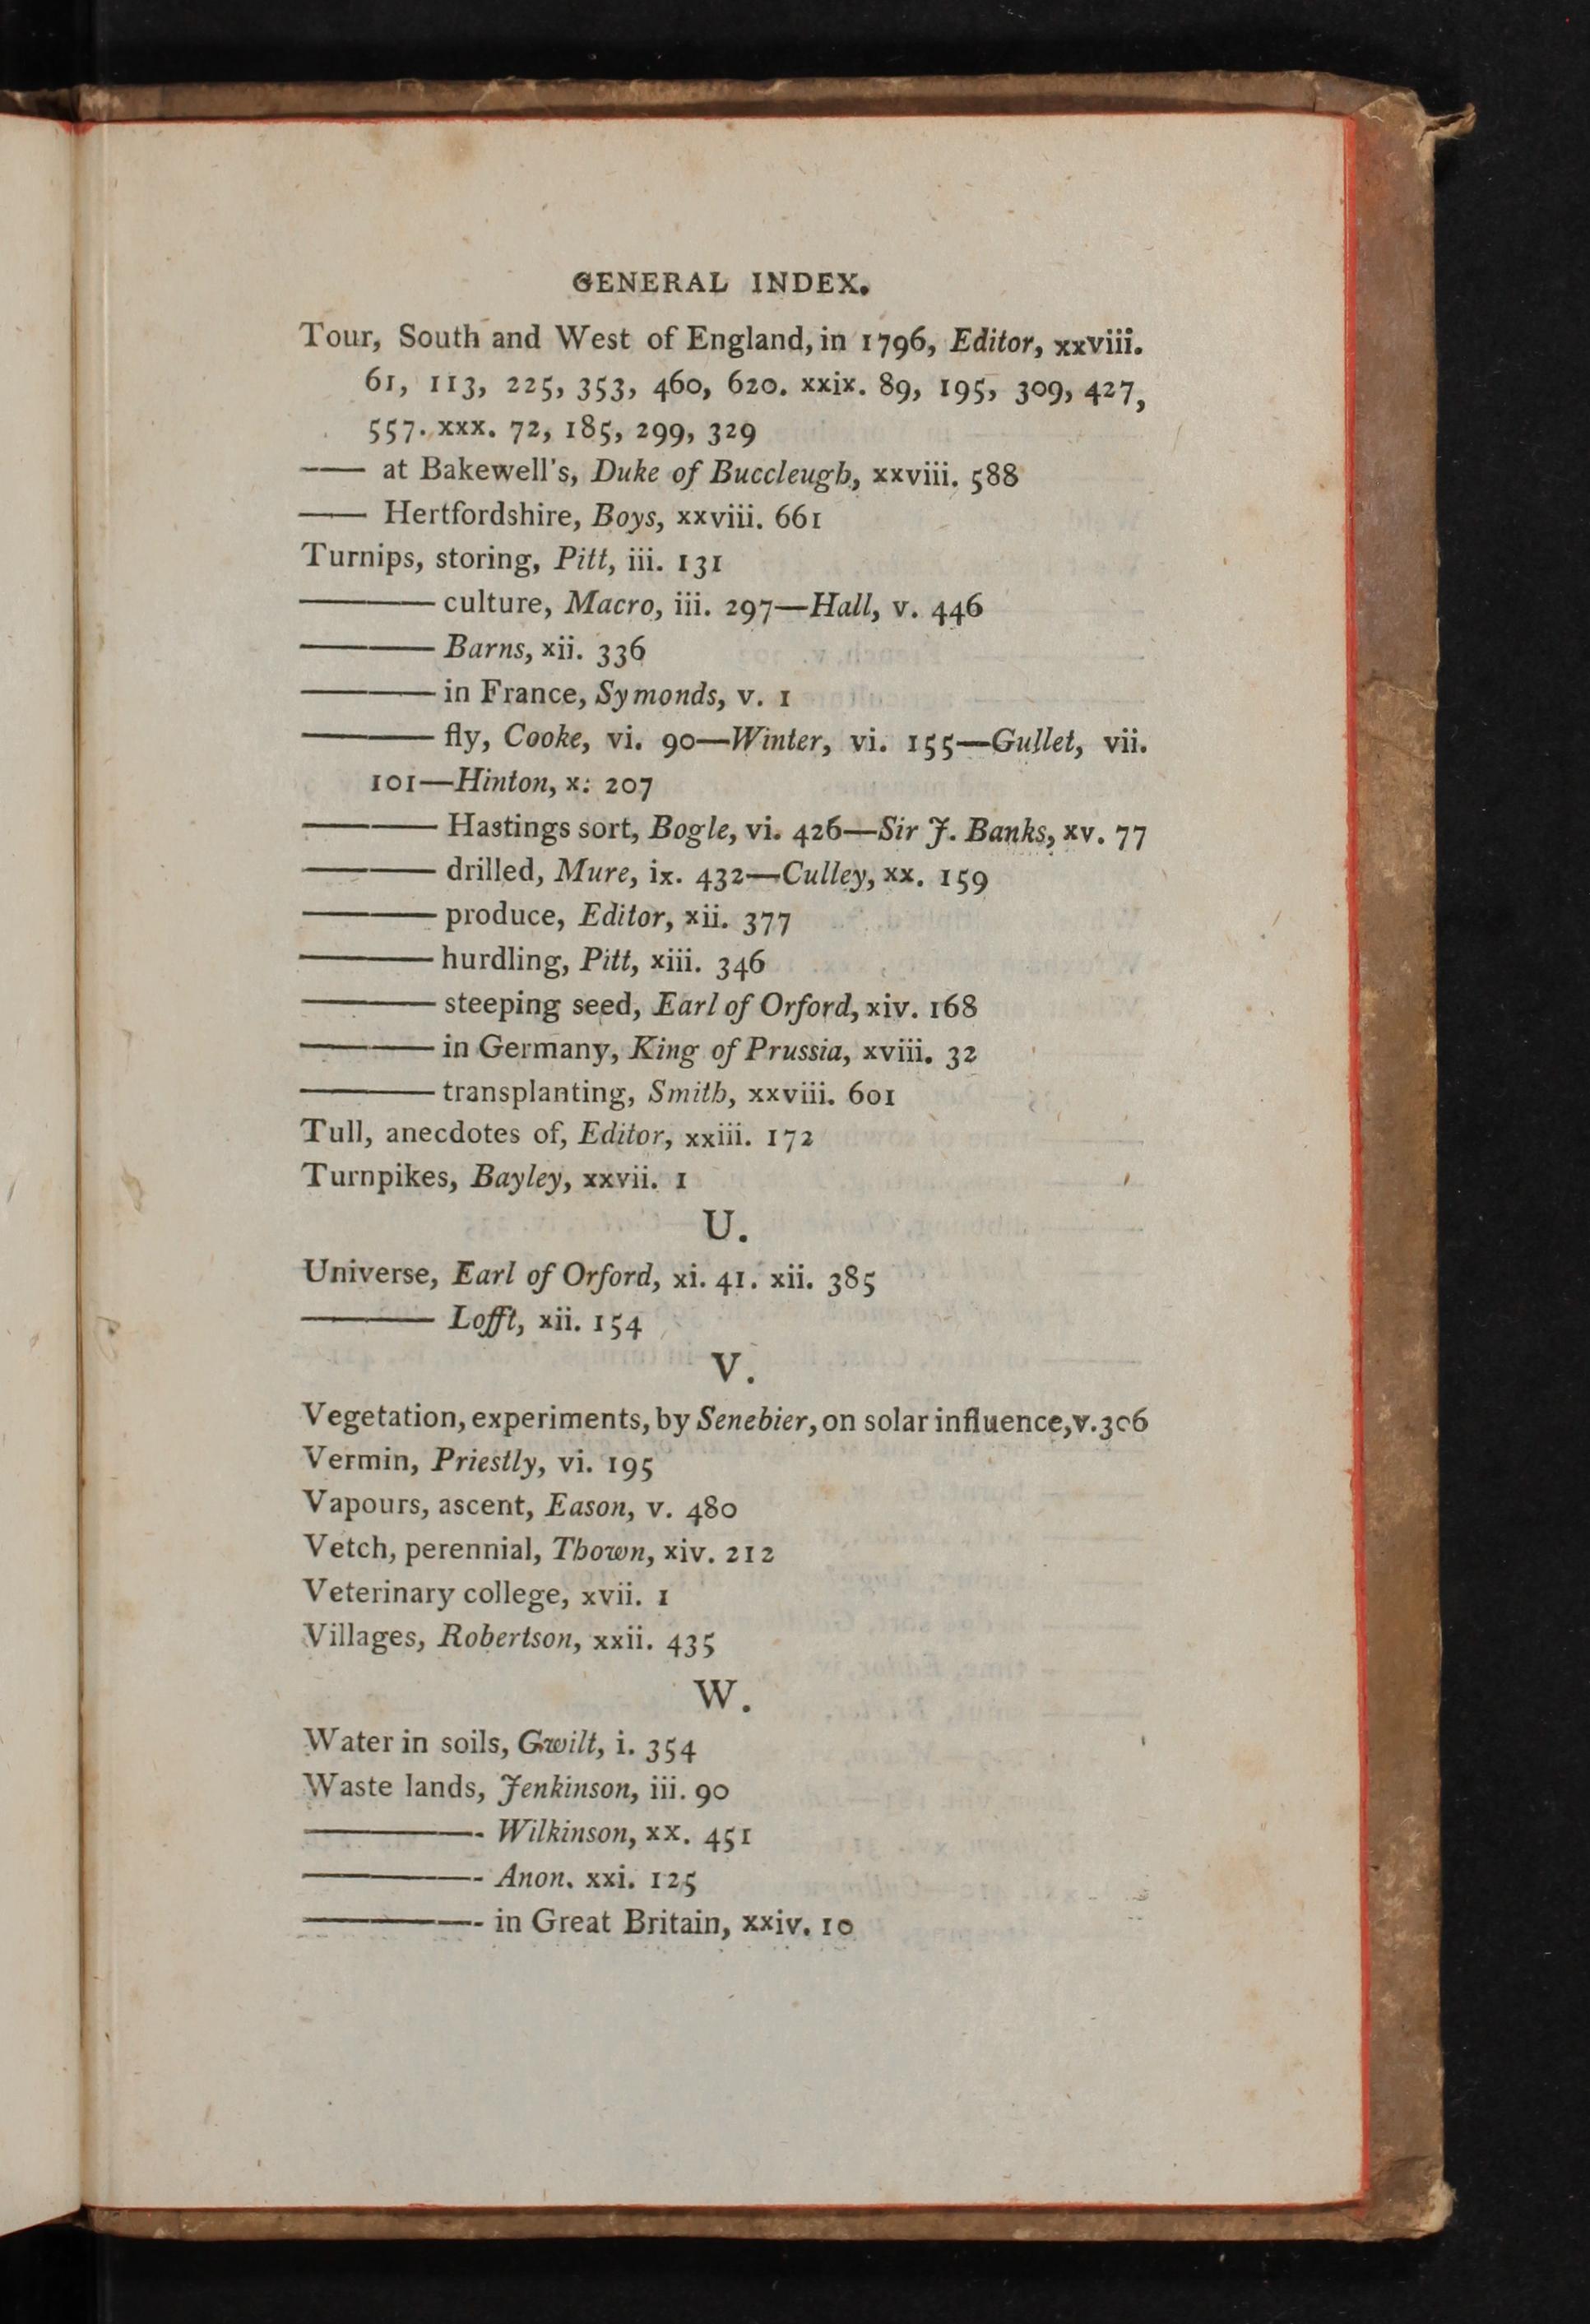 GENERAL INDEX.
Tour, South and West of England, in 1796, Editor, xxviii.
61, 113, 225, 353, 460, 620. xxix. 89, 195, 309, 427,
557. xxx. 72, 185, 299, 329
—— at Bakewell's, Duke of Buccleugh, xxviii. 588
—— Hertfordshire, Boys, xxviii. 661
Turnips, storing, Pitt, iii. 131
———— culture, Macro, iii. 297—Hall, v. 446
———— Barns, xii. 336
———— in France, Symonds, v. 1
———— fly, Cooke, vi. 90—Winter, vi. 155—Gullet, vii.
101—Hinton, x: 207
———— Hastings sort, Bogle, vi. 426—Sir J. Banks, xv. 77
———— drilled, Mure, ix. 432—Culley, xx. 159
———— produce, Editor, xii. 377
———— hurdling, Pitt, xiii. 346
———— steeping seed, Earl of Orford, xiv. 168
———— in Germany, King of Prussia, xviii. 32
———— transplanting, Smith, xxviii. 601
Tull, anecdotes of, Editor, xxiii. 172
Turnpikes, Bayley, xxvii. 1
U.
Universe, Earl of Orford, xi. 41. xii. 385
———— Lofft, xii. 154
V.
Vegetation, experiments, by Senebier, on solar influence, v. 306
Vermin, Priestly, vi. 195
Vapours, ascent, Eason, v. 480
Vetch, perennial, Thown, xiv. 212
Veterinary college, xvii. 1
Villages, Robertson, xxii. 435
W.
Water in soils, Gwilt, i. 354
Waste lands, Jenkinson, iii. 90
—————- Wilkinson, xx. 451
—————- Anon. xxi. 125
—————- in Great Britain, xxiv. 10